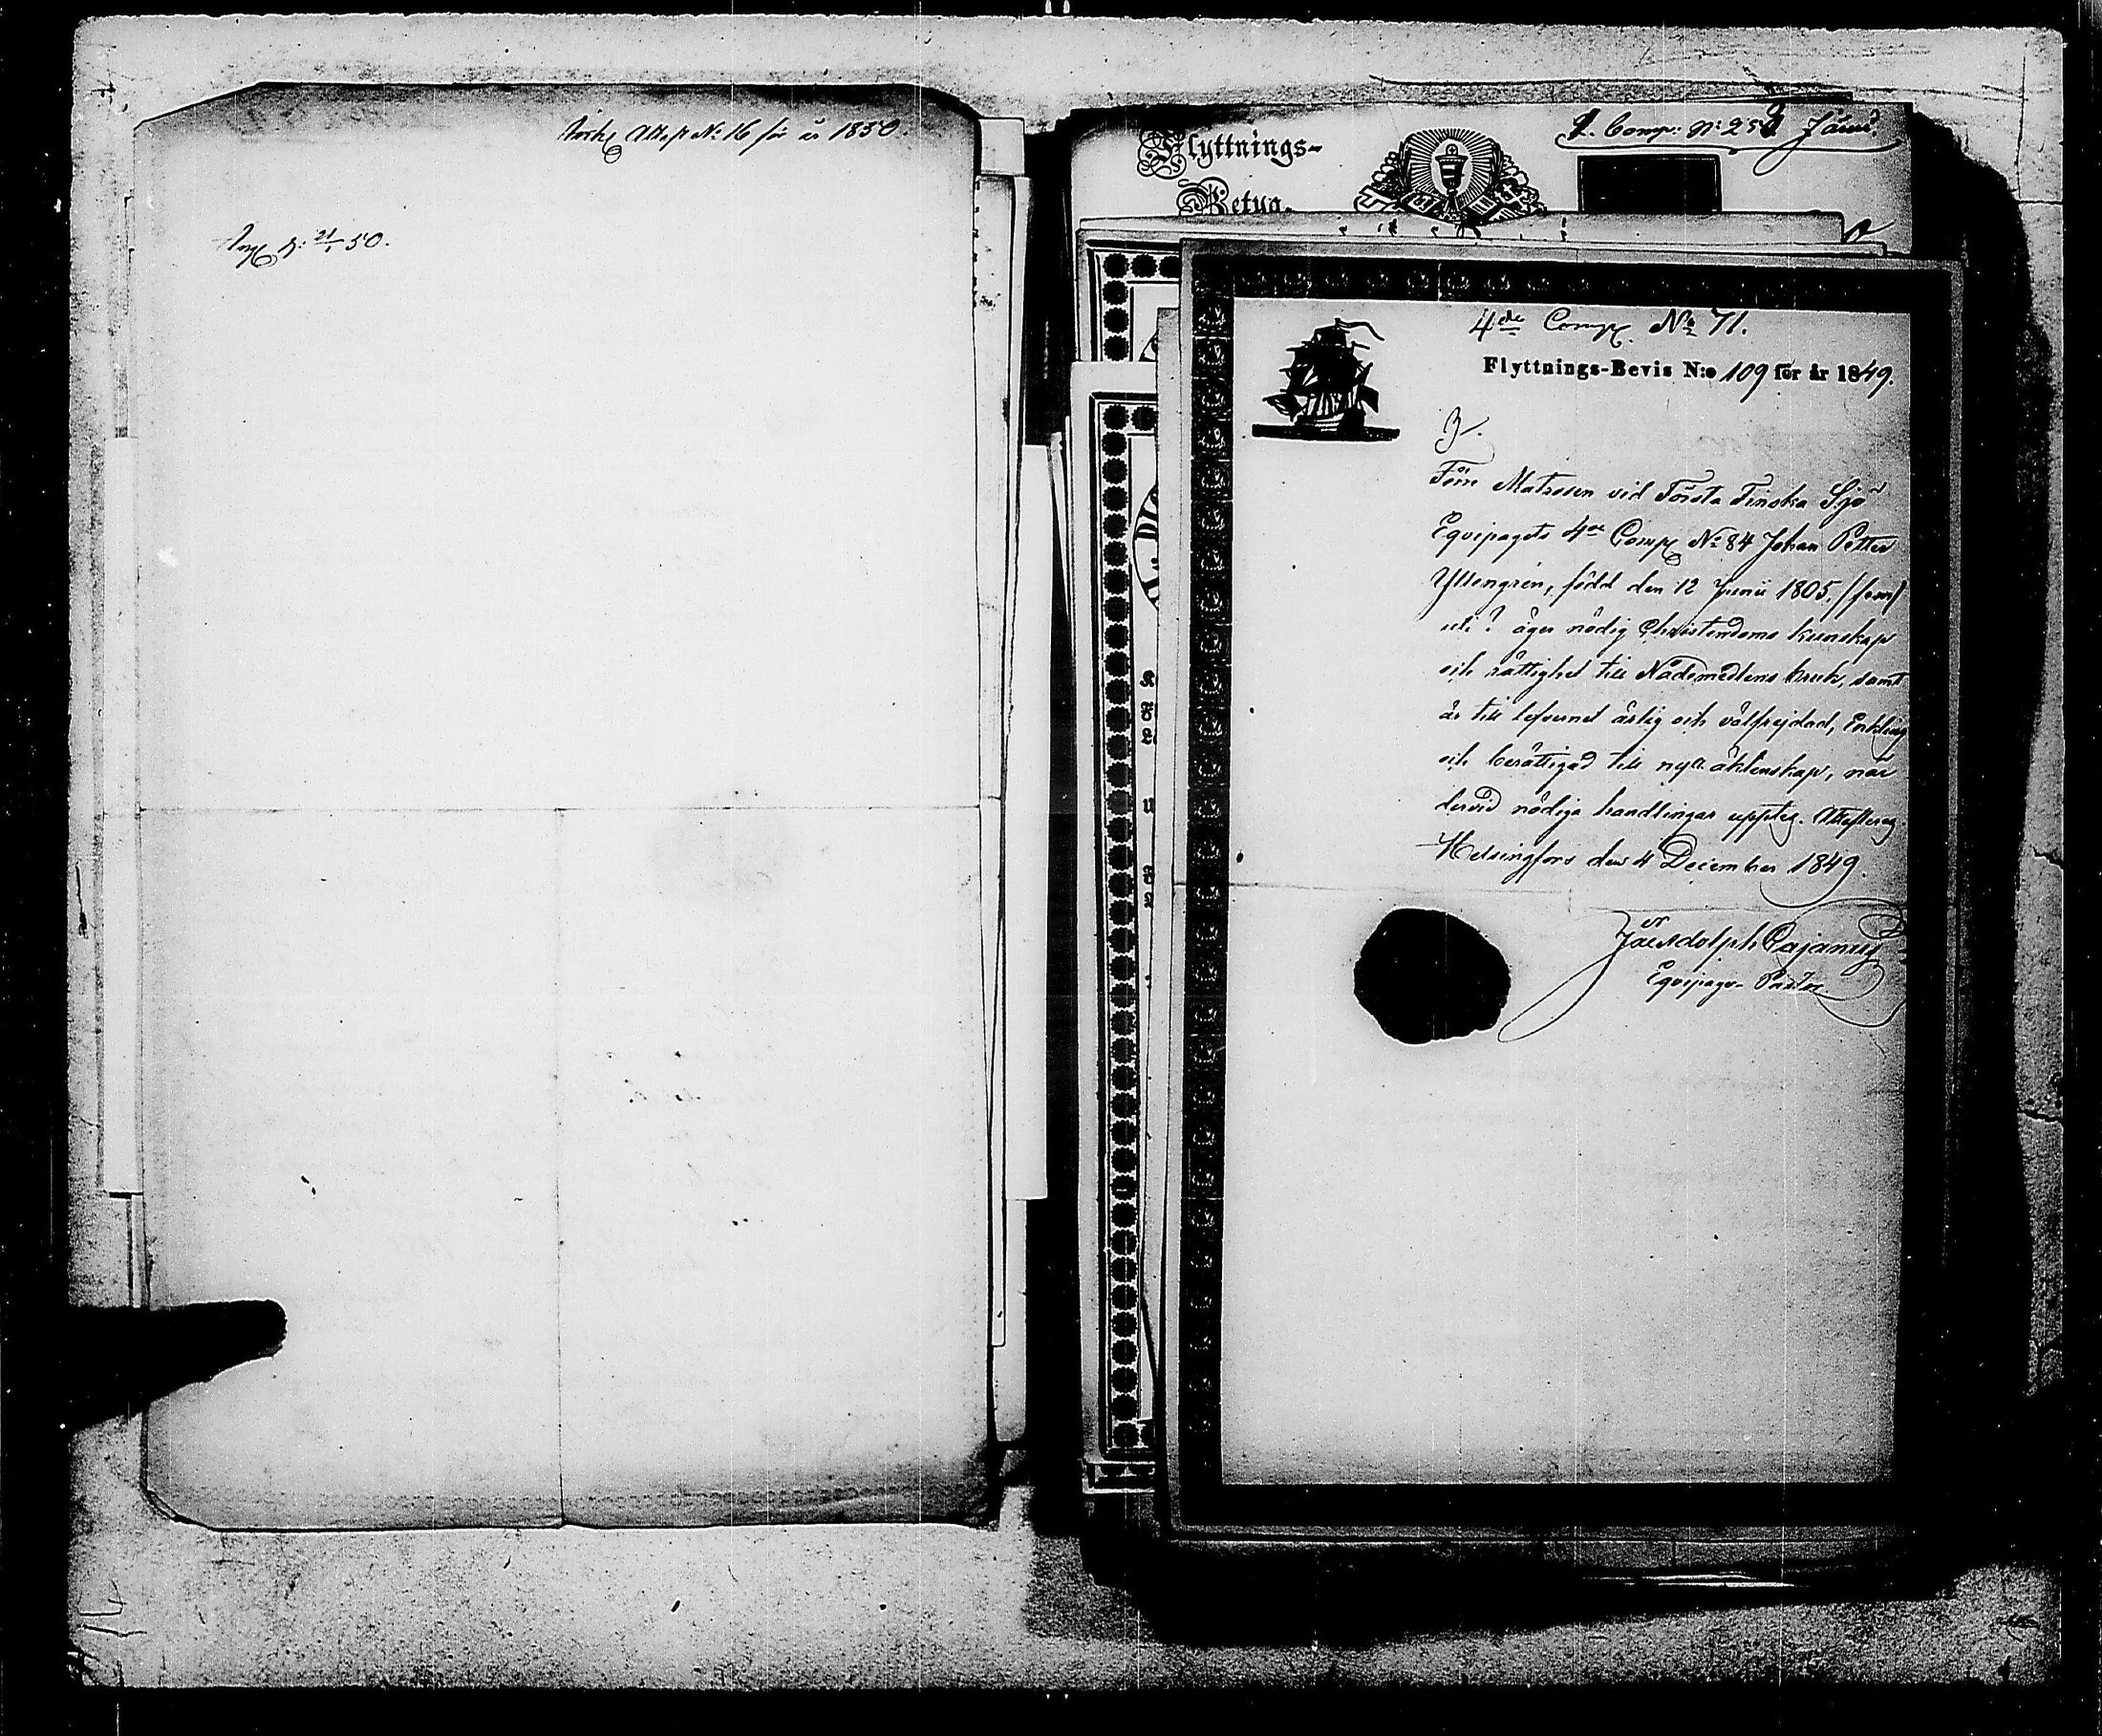 Attest N: 16 för år 1850.
21/1 50.
Flyttnings-
Betyg.
Comp: N: 25
4de Comp. No 71.
Flyttnings-Bevis N:o 109 för år 1849.
Förre Matrosen vid Första Finska Sjö
Equipagets 4de Comp. No 84 Johan Petter
Yttengrén, född den 12 Junii 1805, (fem)
uti? äger nödig Christendoms kunskap
och rättighet till Nådemedlens bruk, samt
är till lefvernet ärlig och välfrejdad, Enkling
och berättigad till nytt äktenskap, när
dervid nödiga handlingar uppteg. Attesteras
Helsingfors den 4 December 1849.
Adolph Cajanus
Equipage-Pastor.